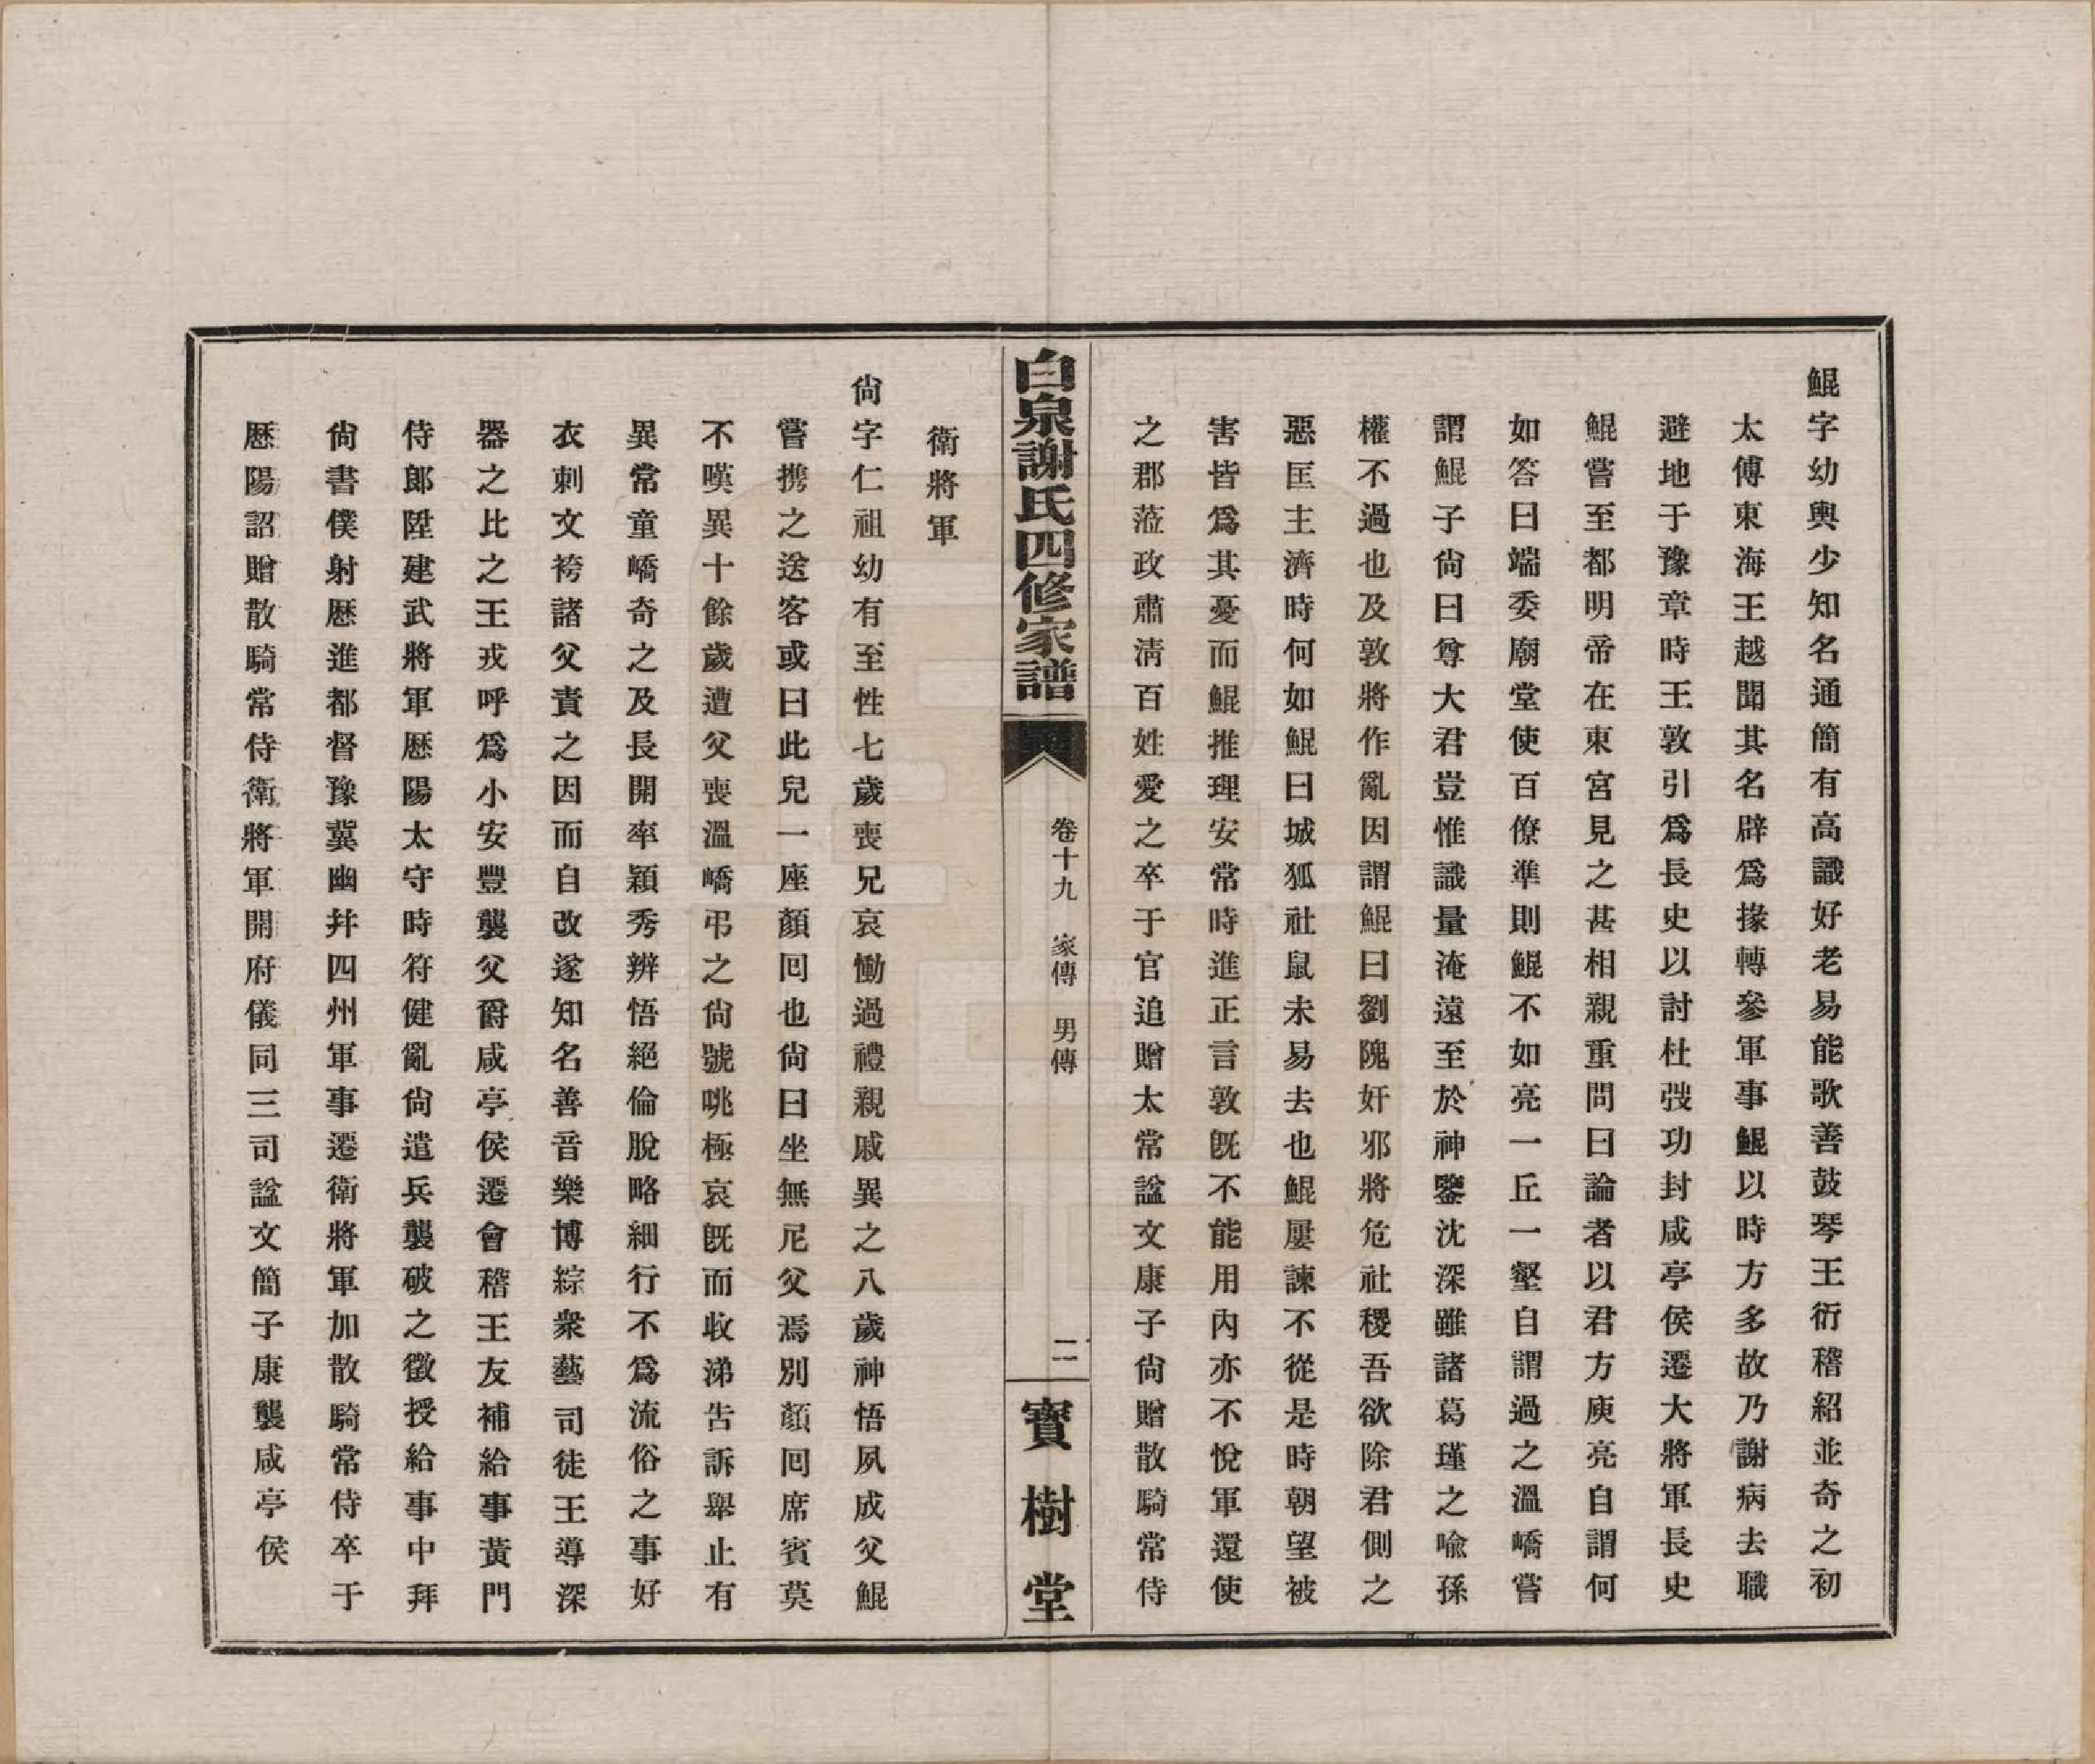 鯤字幼輿少知名通簡有高識好老易能歌善鼓琴王衍稽紹並奇之初
太傅東海王越聞其名辟爲掾轉參軍事鯤以時方多故乃謝病去職
避地于豫章時王敦引爲長史以討杜弢功封咸亭侯遷大將軍長史
鯤嘗至都明帝在東宮見之甚相親重問曰論者以君方庾亮自謂何
如答曰端委廟堂使百僚準則鯤不如亮一丘一壑自謂過之溫嶠嘗
謂鯤子尙曰尊大君豈惟識量淹遠至於神鑒沈深雖諸葛瑾之喩孫
權不過也及敦將作亂因謂鯤曰劉隗奸邪將危社稷吾欲除君側之
惡匡主濟時何如鯤曰城狐社鼠未易去也鯤屢諫不從是時朝望被
害皆爲其憂而鯤推理安常時進正言敦旣不能用內亦不悅軍還使
之郡蒞政肅淸百姓愛之卒于官追贈太常諡文康子尙贈散騎常侍
白泉謝氏四修家譜
卷十九 家傳 男傳
二
寶樹堂
衛將軍
尙字仁祖幼有至性七歲喪兄哀慟過禮親戚異之八歲神悟夙成父鯤
嘗携之送客或曰此兒一座顏回也尙曰坐無尼父焉別顏回席賓莫
不嘆異十餘歲遭父喪溫嶠弔之尙號咷極哀旣而收涕告訴舉止有
異常童嶠奇之及長開率穎秀辨悟絕倫脫略細行不爲流俗之事好
衣刺文袴諸父責之因而自改遂知名善音樂博綜衆藝司徒王導深
器之比之王戎呼爲小安豐襲父爵咸亭侯遷會稽王友補給事黃門
侍郞陞建武將軍歷陽太守時符健亂尙遣兵襲破之徵授給事中拜
尙書僕射歷進都督豫冀幽幷四州軍事遷衛將軍加散騎常侍卒于
歷陽詔贈散騎常侍衛將軍開府儀同三司諡文簡子康襲咸亭侯